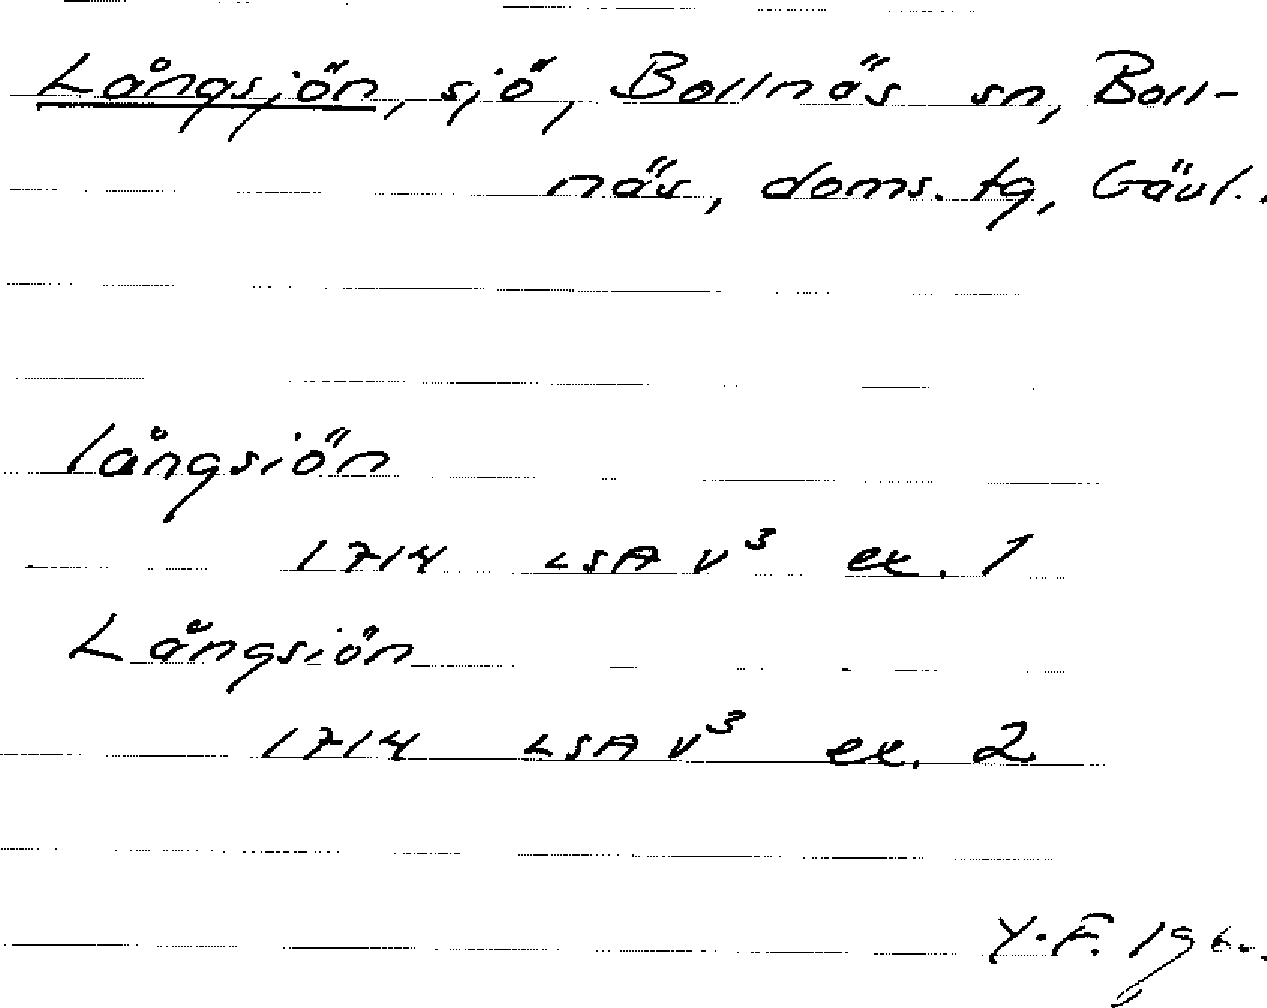 Långsjön, sjö, Bollnäs sn, Boll-
näs, doms. tg, Gävl..
långsiön
1714 LSA V³ ex. 1
Långsiön
1714 LSA V³ ex. 2
Y.F.